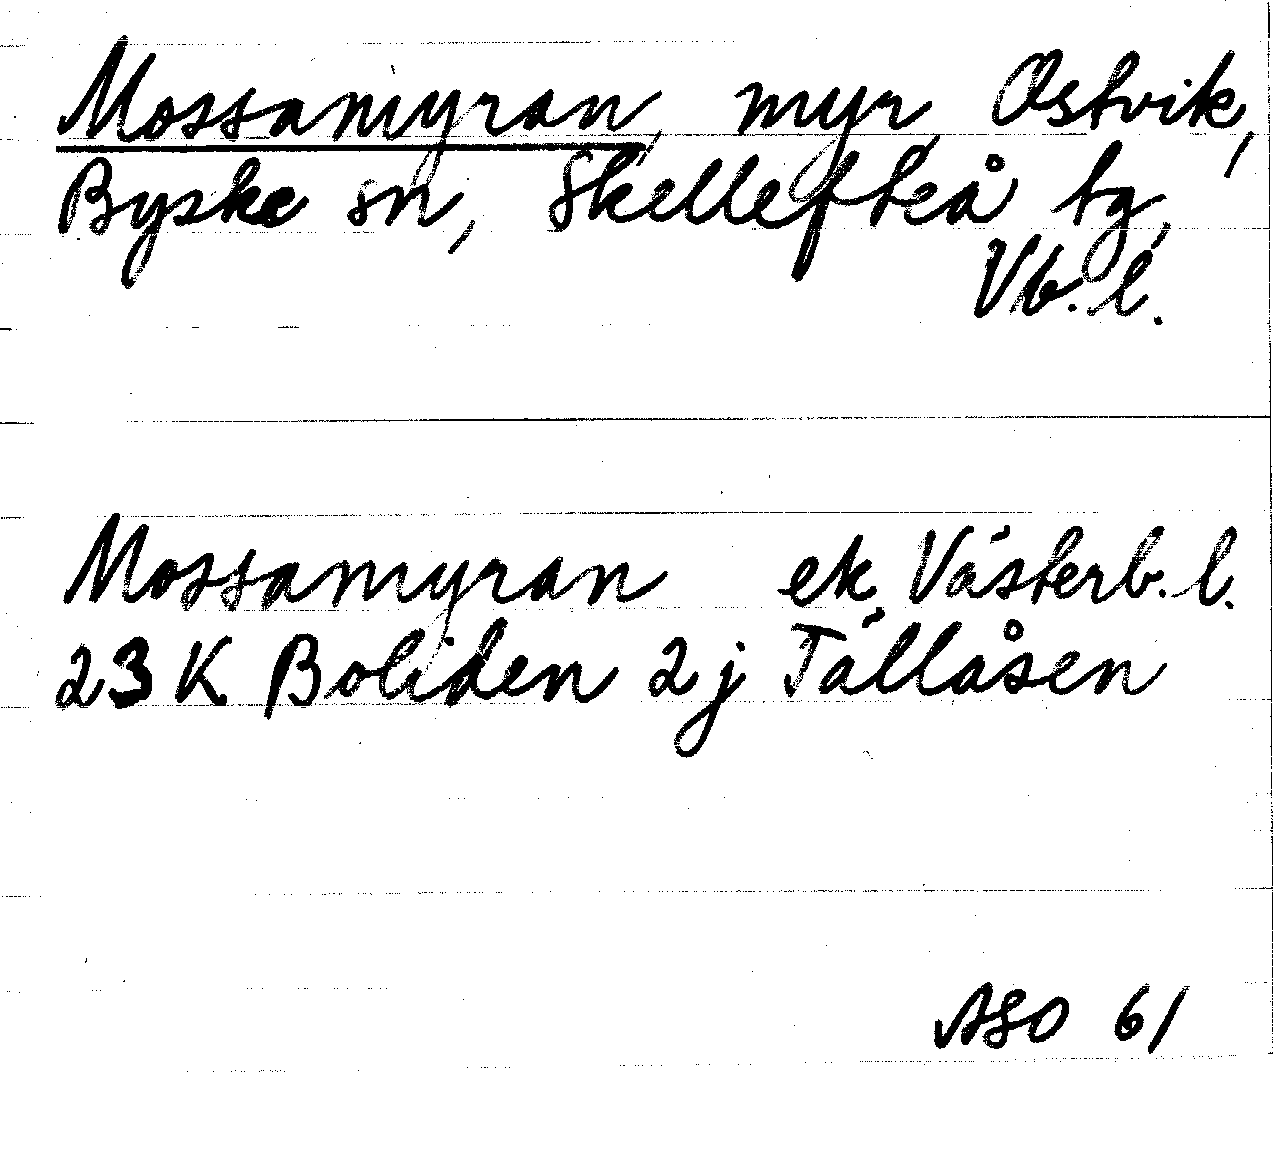 Mossamyran, myr, Ostvik,
Byske sn, Skellefteå tg,
Vb. l.
Mossamyran ek. Västerb. l.
23 K Boliden 2j Tällåsen
ASO 61